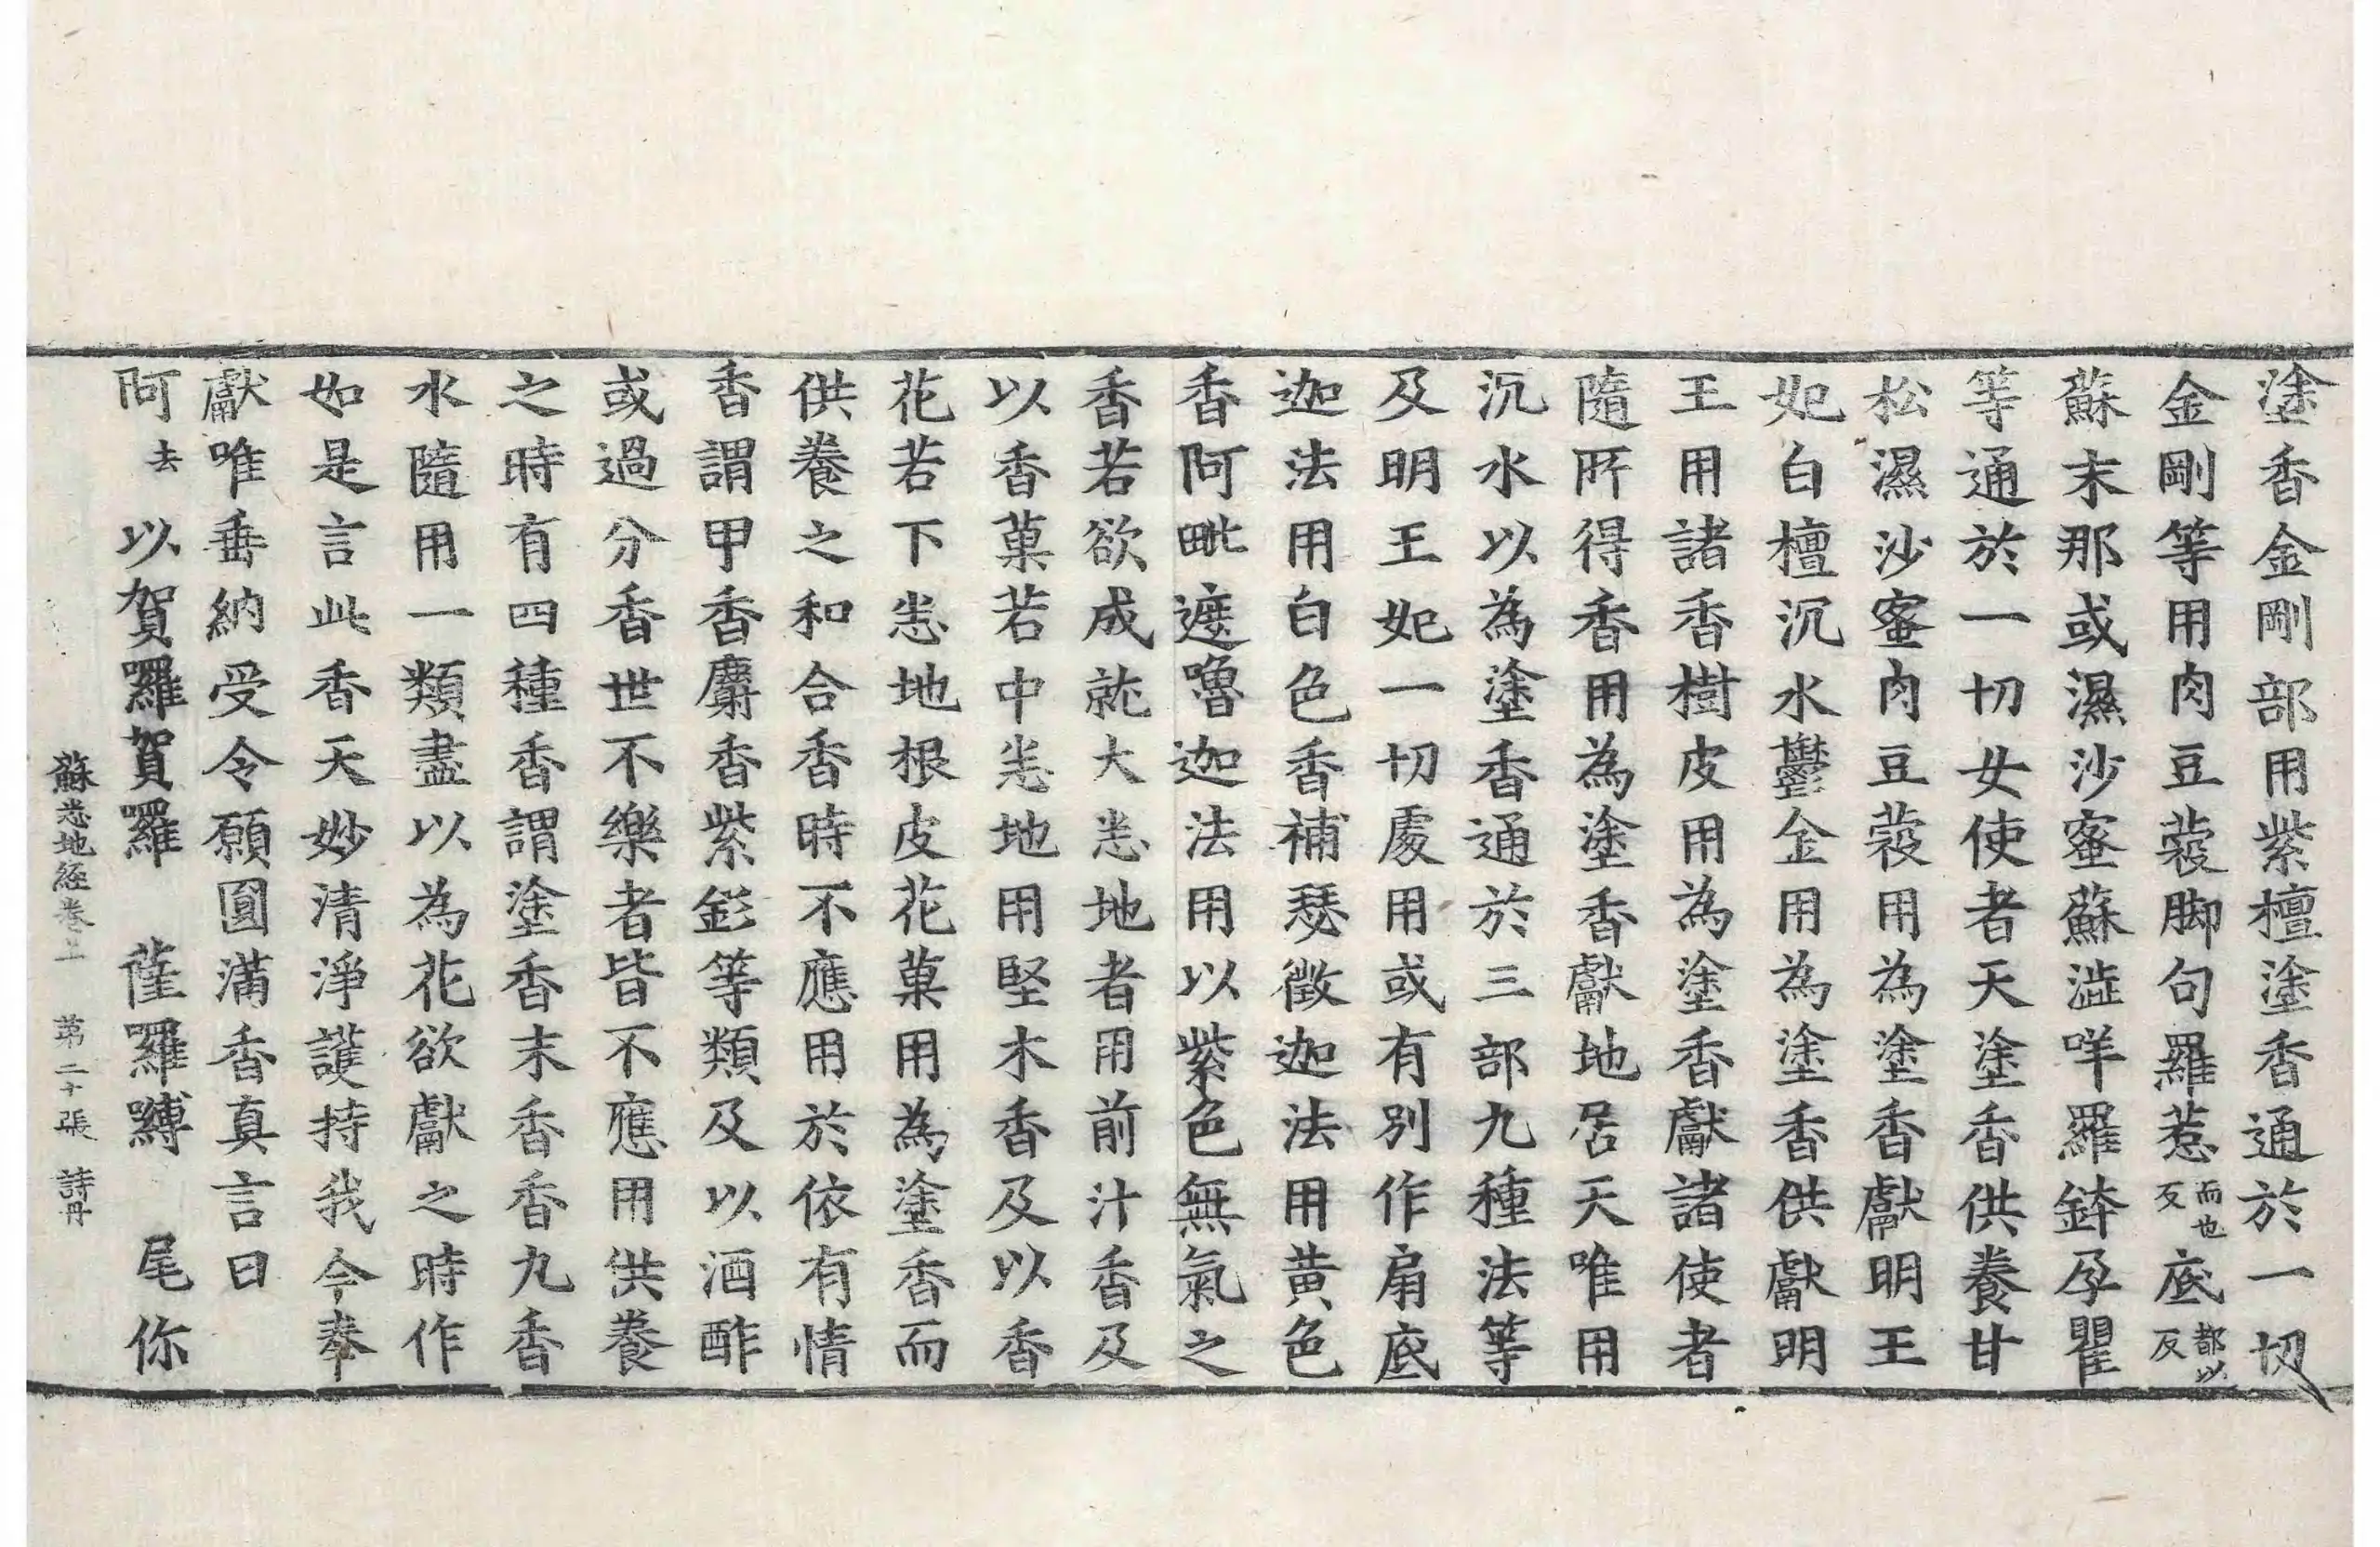 塗香金剛部用紫檀塗香通於一切
金剛等用肉豆蔲脚句羅惹而也反底都以反
蘇末那或濕沙蜜蘇澁咩羅鉢孕瞿
等通於一切女使者天塗香供養甘
松濕沙蜜肉豆蔲用為塗香獻明王
妃白檀沉水鬱金用為塗香供獻明
王用諸香樹皮用為塗香獻諸使者
隨所得香用為塗香獻地居天唯用
沉水以為塗香通於三部九種法等
及明王妃一切處用或有別作扇底
迦法用白色香補瑟徵迦法用黃色
香阿毗遮嚕迦法用以紫色無氣之
香若欲成就大悉地者用前汁香及
以香菓若中悉地用堅木香及以香
花若下悉地根皮花菓用為塗香而
供養之和合香時不應用於依有情
香謂甲香麝香紫鉚等類及以酒酢
或過分香世不樂者皆不應用供養
之時有四種香謂塗香末香香九香
水隨用一類盡以為花欲獻之時作
如是言此香天妙清淨護持我今奉
獻唯垂納受令願圓滿香真言曰
阿去 以賀囉賀囉 薩囉嚩 尾你
蘇悉地經卷上 第二十張 詩丹